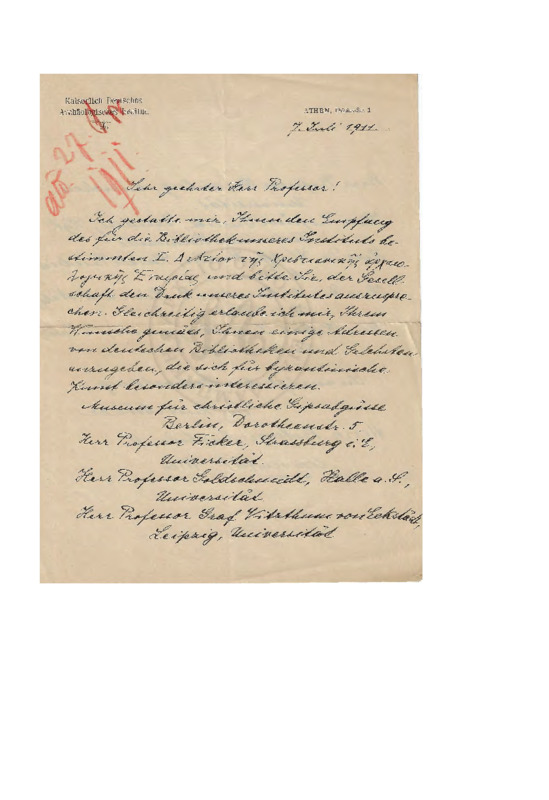 Kaiserlich Deutsches
Archäologisches Institut.
ATHEN,
7. Juli 1911.
27
1911
Sehr geehrter Herr Professor!
Ich gestatte mir, Ihnen den Empfang
des für die Bibliothek unseres Instituts be-
stimmten I. Δελτίον τῆς Χριστιανικῆς ἀρχαιο-
λογικῆς Ἑταιρίας und bitte Sie, der Gesell-
schaft den Dank unseres Institutes auszuspre-
chen. Gleichzeitig erlaube ich mir, Ihrem
Wunsche gemäss, Ihnen einige Adressen
von deutschen Bibliotheken und Gelehrten
anzugeben, die sich für byzantinische
Kunst besonders interessieren.
Museum für christliche Gipsabgüsse
Berlin, Dorotheenstr. 5.
Herr Professor Ficker, Strassburg i. E.,
Universität.
Herr Professor Goldschmidt, Halle a. S.,
Universität
Herr Professor Graf Vitzthum von Eckstädt,
Leipzig, Universität